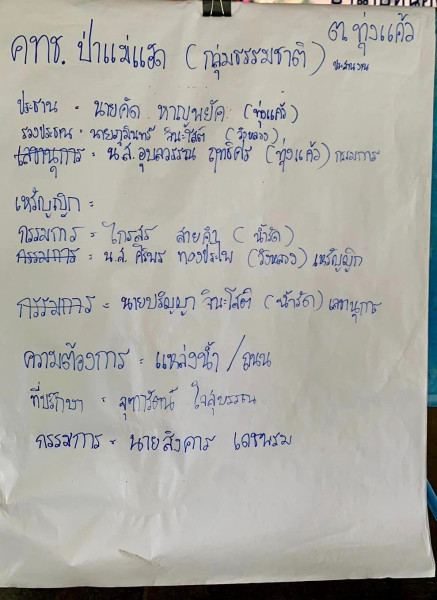 ต.ทุ่งแค้ว
คทช. ป่าแม่แฮด (กลุ่มธรรมชาติ)
ประธาน = นายคิด หาญพยัค (ทุ่งแค้ว)
รองประธาน = นายภูมินทร์ จินะโสติ (วังหลวง)
เลขานุการ = น.ส.อุบลวรรณ ฤทธิศร (ทุ่งแค้ว) กรรมการ
เหรัญญิก =
กรรมการ = ไกรสร สายคำ (น้ำรัด)
กรรมการ = น.ส. ศิริพร (วังหลวง) เหรัญญิก
กรรมการ = นายปริญญา จินะโสติ (น้ำรัด) เลขานุการ
ความต้องการ = แหล่งน้ำ / ถนน
ที่ปรึกษา = จุฑารัตน์ ใจสุบรรณ
กรรมการ = นายสิงคาร เดชพรม